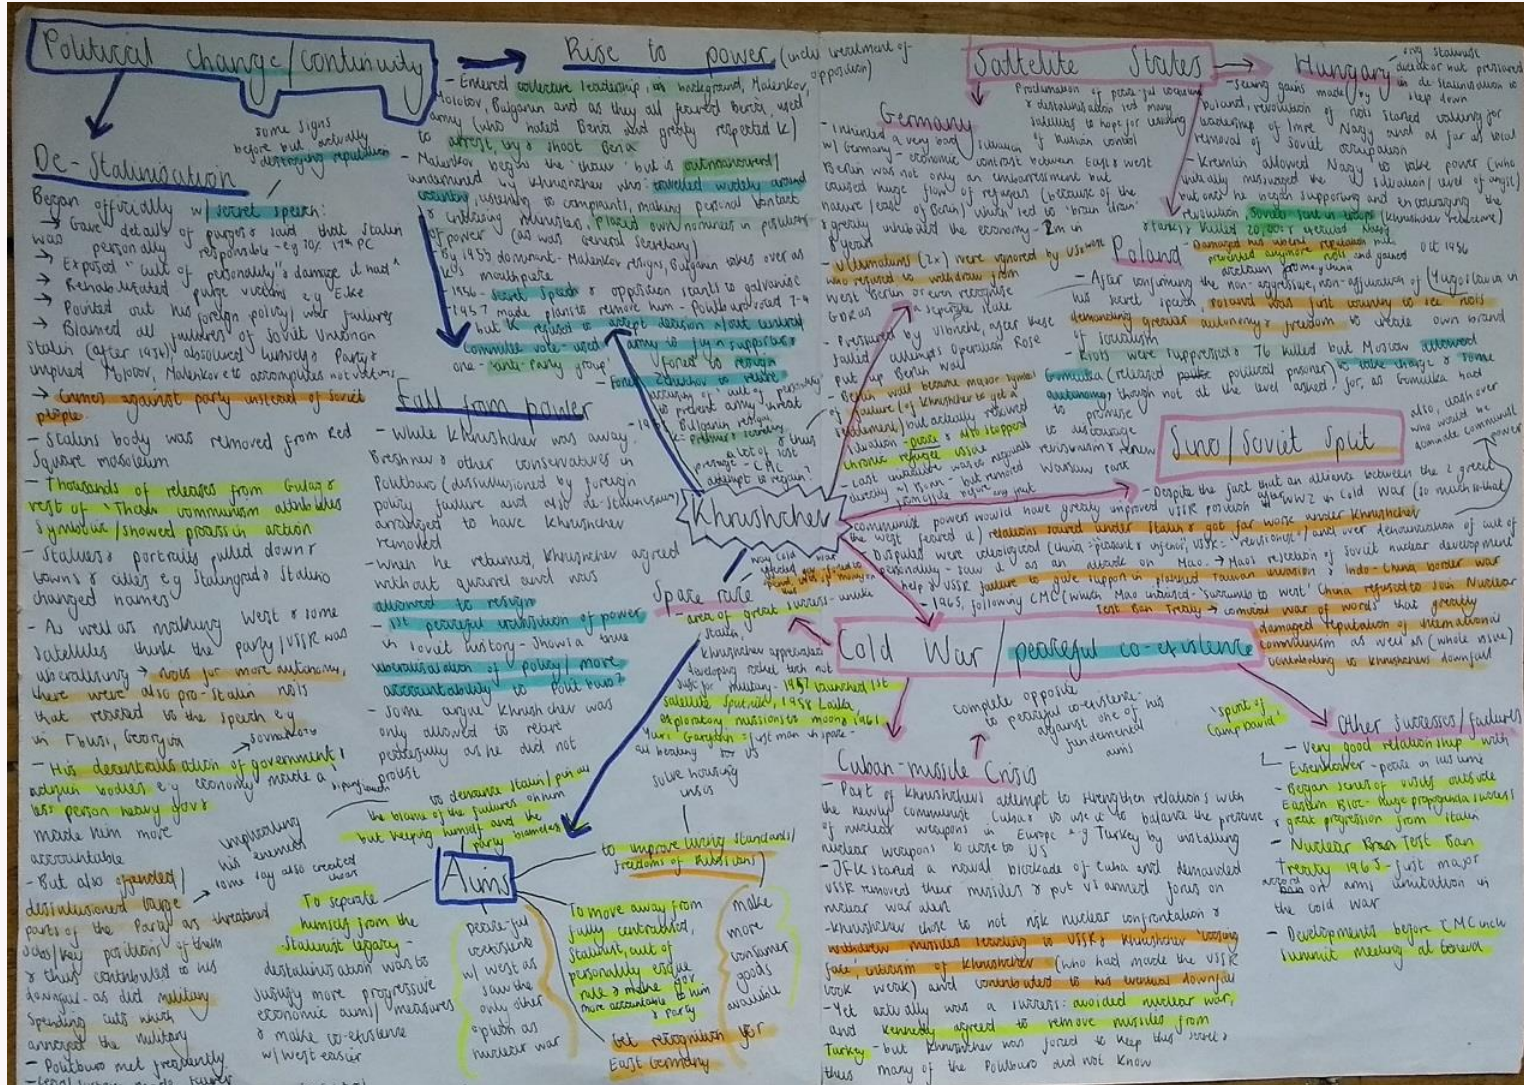 Political change/continuity
De-Stalinisation
some signs
before but actually
destroying reputation
Began officially w/ secret speech:
→ Gave details of purges & said that Stalin
was personally responsible - eg 70% 17th PC
→ Exposed "cult of personality" & damage it had
→ Rehabilitated purge victims e.g
→ Pointed out his foreign policy/war failures
→ Blamed all failures of Soviet Union on
Stalin (after 1934), absolved himself & Party &
implied Molotov, Malenkov etc accomplices not victims
→ Crimes against party instead of Soviet
people
- Stalins body was removed from Red
Square
- Thousands of releases from Gulag &
rest of
symbolic/showed process in action
- Statues & portraits pulled down &
towns & cities eg Stalingrad & Stalino
changed names
- As well as making West & some
satellites think the party/USSR was
liberalising → riots for more autonomy,
there were also pro-Stalin riots
that reacted to the speech e.g
in Tbilisi, Georgia
- His decentralisation of government,
bodies e.g economy made a
less person heavy gov &
made him more
accountable
- But also offended/
disillusioned large
parts of the Party as threatened
jobs/key positions of them
& thus contributed to his
downfall - as did military
spending cuts which
annoyed the military
- Politburo met frequently
Rise to power (incl. treatment of
opposition)
- Entered collective leadership in background, Malenkov,
Molotov, Bulganin and as they all feared Beria, used
army (who hated Beria and greatly respected K)
to arrest, try & shoot Beria
- Malenkov began the 'thaw' but is outmanoeuvred/
undermined by Khrushchev who travelled widely around
country, listening to complaints, making personal contact
& criticising ministers, placed own nominees in positions
of power (as was General Secretary)
- By 1955 dominant - Malenkov resigns, Bulganin takes over as
K's mouthpiece
- 1956 - secret speech & opposition starts to galvanise
- 1957 made plans to remove him - Politburo voted 7-4
but K refused to accept decision w/out central
committee vote - used army to fly in supporters
one - 'anti-Party group' forced to resign
- Forced Zhukov to retire
accusing of 'cult of personality'
to prevent army threat
- 1958 Bulganin resigns
Fall from power
- While Khrushchev was away,
Brezhnev & other conservatives in
Politburo (dissillusioned by foreign
policy failure and also de-stalinisation)
arranged to have Khrushchev
removed
- When he returned, Khrushchev agreed
without quarrel and was
allowed to resign
- 1st peaceful transition of power
in soviet history - shows a true
liberalisation of policy/more
accountability to Politburo?
- Some argue Khrushchev was
only allowed to retire
peacefully as he did not
protest
Khrushchev
Aims
to denounce Stalin/pin all
the blame of the failures on him
but keeping himself and the
party blameless
implicating
his enemies
some say also created
fear
To separate
himself from the
Stalinist legacy -
destalinisation was to
justify more progressive
economic aims/measures
& make co-existence
w/ west easier
peaceful
coexistence
w/ west as
saw the
only other
option as
nuclear war
To move away from
fully centralised,
Stalinist, cult of
personality esque
rule & make gov
more accountable to him
& Party
Get recognition for
East Germany
solve housing
crisis
to improve living standards/
freedoms of Russians
make
more
consumer
goods
available
Space race
- area of great success - unlike
Stalin,
Khrushchev appreciated
developing rocket tech not
just for military - 1957 launched 1st
satellite Sputnik, 1958 Laika,
exploratory missions to moon & 1961
Yuri Gargarin = first man in space -
all beating to US
Sattelite States
Proclamation of peaceful coexistence
& destalinisation led many
satellites to hope for
of Russian control
Germany
- Inherited a very bad situation
w/ Germany - economic contrast between East & West
Berlin was not only an embarrassment but
caused huge flow of refugees (because of the
nature/ease of Berlin) which led to 'brain drain'
& greatly inhibited the economy - 2m in
years
- Ultimatums (2x) were ignored by US & West
who refused to withdraw from
West Berlin or even recognise
GDR as a separate state
- Pressured by
Ulbricht, after these
failed attempts Operation Rose
put up Berlin Wall
- Berlin Wall became major symbol
of failure (of Khrushchev to get a
settlement) but actually relieved
situation - peace & also stopped
chronic refugee issue
Hungary
- Seeing gains made by
Poland, revolution of riots started calling for
leadership of Imre Nagy and as far as total
removal of Soviet occupation
- Kremlin allowed Nagy to take power (who
initially misjudged the situation/level of anger)
but once he began supporting and encouraging the
revolution Soviets sent in troops (Khrushchev reluctant)
& tanks & killed 20,000 & executed Nagy
- Damaged his liberal reputation but
prevented anymore riots and gained
Oct 1956
Poland
- After confirming the non-aggressive, non-affiliation of Yugoslavia in
his secret speech, Poland was first country to see riots
demanding greater autonomy & freedom to create own brand
of socialism
- Riots were suppressed & 76 killed but Moscow allowed
Gomulka (released political prisoner) to take charge & some
autonomy, though not at the level asked for, as Gomulka had
to promise
to discourage
revisionism & renew
Warsaw Pact
Sino/Soviet Split
also, clash over
who would be
dominate communist
power
- Despite the fact that an alliance between the 2 great
communist powers would have greatly improved USSR position after WW2 in Cold War (so much so that
the west feared it) relations soured under Stalin & got far worse under Khrushchev
- Disputes were ideological (China = 'peasant & inferior', USSR = 'revisionist') and over denunciation of cult of
personality - saw it as an attack on Mao. → Maos rejection of Soviet nuclear development
help & USSR failure to give support in planned Taiwan invasion & Indo-China border war
- 1963, following CMC (which Mao 'succumb to west') China refused to join Nuclear
Test Ban Treaty → comical war of words that greatly
damaged reputation of international
communism as well as (whole issue)
contributing to Khrushchevs downfall
Cold War/peaceful co-existence
complete opposite
to peaceful co-existence -
against one of his
fundemental
aims
Cuban-missile Crisis
- Part of Khrushchevs attempt to strengthen relations with
the newly communist Cuba & to use it to balance the presence
of nuclear weapons in Europe e.g Turkey by installing
nuclear weapons so close to US
- JFK started a naval blockade of Cuba and demanded
USSR removed their missiles & put US armed forces on
nuclear war alert
- Khrushchev chose to not risk nuclear confrontation &
withdrew missiles leading to USSR & Khrushchev 'loosing
face', criticism of Khrushchev (who had made the USSR
look weak) and contributed to his eventual downfall
- Yet actually was a success: avoided nuclear war,
and Kennedy agreed to remove missiles from
Turkey - but Khrushchev was forced to keep this secret &
thus many of the Politburo did not know
'spirit of
Camp David'
Other successes/failures
- Very good relationship with
Eisenhower - peace in his time
- Began series of visits outside
Eastern Bloc - huge propaganda success
& great progression from Stalin
- Nuclear Test Ban
Treaty 1963 - first major
accord on arms limitation in
the cold war
- Developments before CMC incl.
summit meeting at Geneva